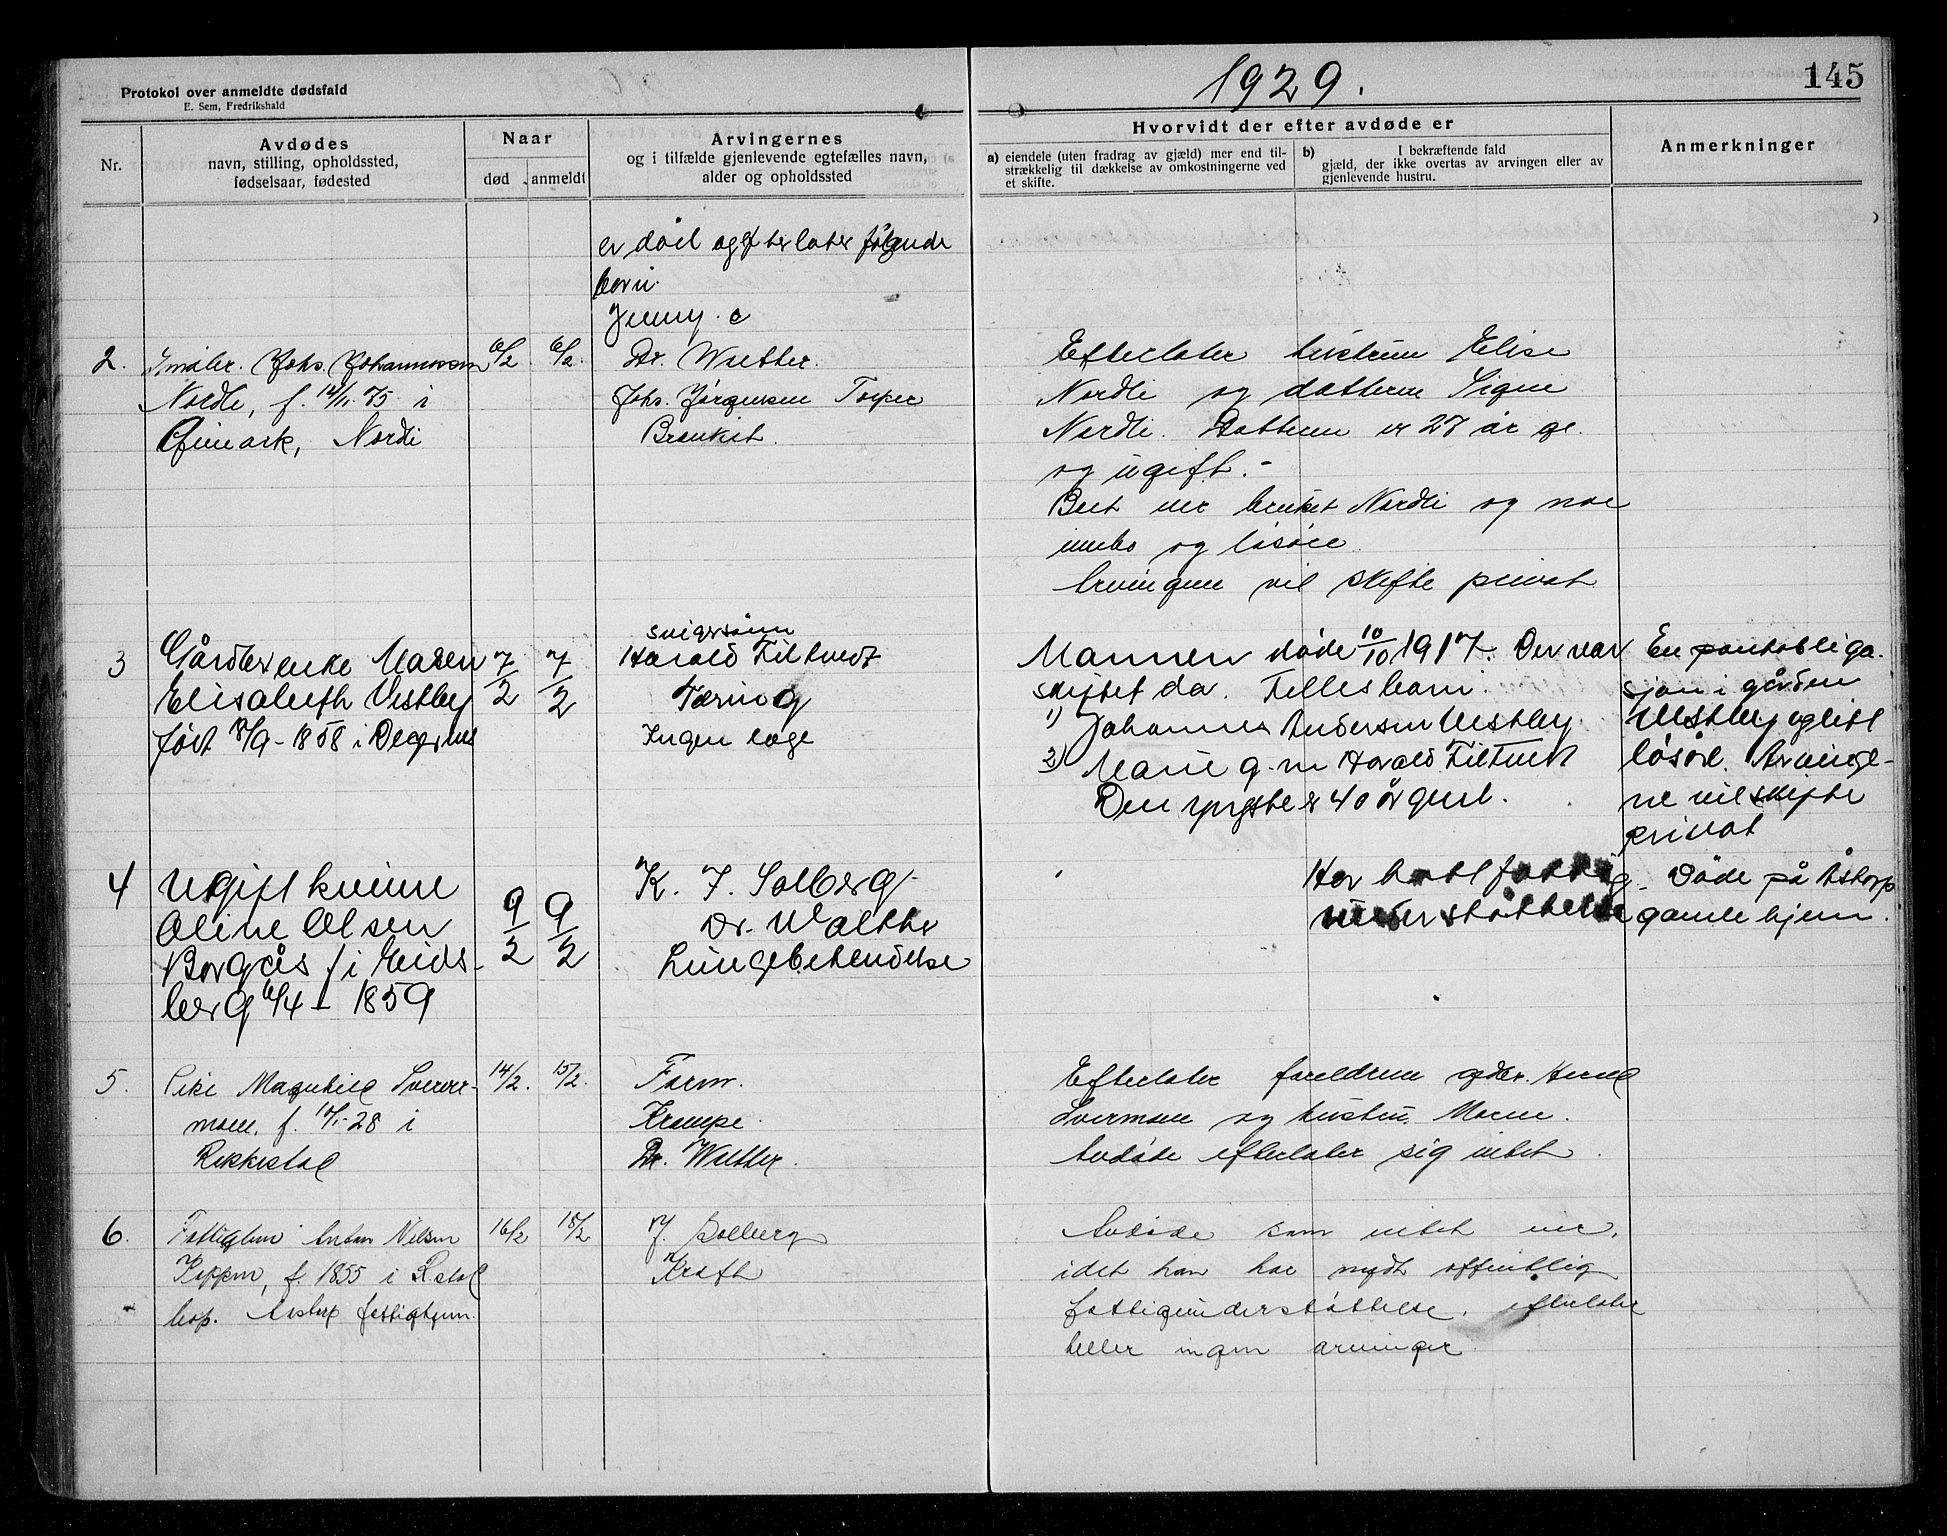 Protokol over anmeldte dødsfald
E. Sem, Fredrikshald
1929.
145
Nr.
Avdødes
navn, stilling, opholdssted,
fødselsaar, fødested
Naar
død
anmeldt
Arvingernes
og i tilfælde gjenlevende egtefælles navn,
alder og opholdssted
Hvorvidt der efter avdøde er
a) eiendele (uten fradrag av gjæld) mer end til-
strækkelig til dækkelse av omkostningerne ved
et skifte.
b) I bekræftende fald
gjæld, der ikke overtas av arvingen eller av
gjenlevende hustru.
Anmerkninger
er død og efterlater følgende
børn.
Jenny.
2.
Johs. Johannessen
Nordli, f. 14/11.75 i
Ømark, Nordli
6/2
6/2.
Dr. Walther.
Johs. Jørgensen Torper
Efterlater hustruen Elise
Nordli og datteren Signe
Nordli. Datteren er 27 år ge.
og ugift.-
Boet eier bruket Nordli og noe
innbo og løsøre
Arvingene vil skifte privat
3
Gårdbr enke Maren
Elisabeth Vestby
født 8/9-1858 i Degernes
7/2
7/2
svigersønn
Harald Filtvedt
Mannen døde 10/10 1917. Der var
skiftet da. Fellesbarn:
1) Johannes Andersen Vestby
2) Marie g. m Harald Filtvedt
Den yngste er 40 år gml.
En pantobliga-
sjon i gården
Vestby og litt
løsøre. Arvinge-
ne vil skifte
privat
4
Ugift kvinne
Oline Olsen
Borgås f i Eids-
berg 6/4-1859
9/2
9/2
K. J. Solberg
Dr. Walther
Lungebetendelse
Har hatt fattig-
understøttelse
Døde på Åstorp
gamlehjem.
5.
Pike Magnhild Sverer-
moen. f. 28 i
Rakkestad
14/2.
15/2.
Dr. Walther.
Efterlater foreldrene
og hustru
Avdøde efterlater sig intet.
6.
Fattiglem Anton Nilsen
Koppen, f. 1855 i R.stad
bop. Aastorp fattighjem.
16/2
18/2
J. Solberg
Kraft
Avdøde som intet eier,
idet han har nydt offentlig
fattigunderstøttelse, efterlater
heller ingen arvinger